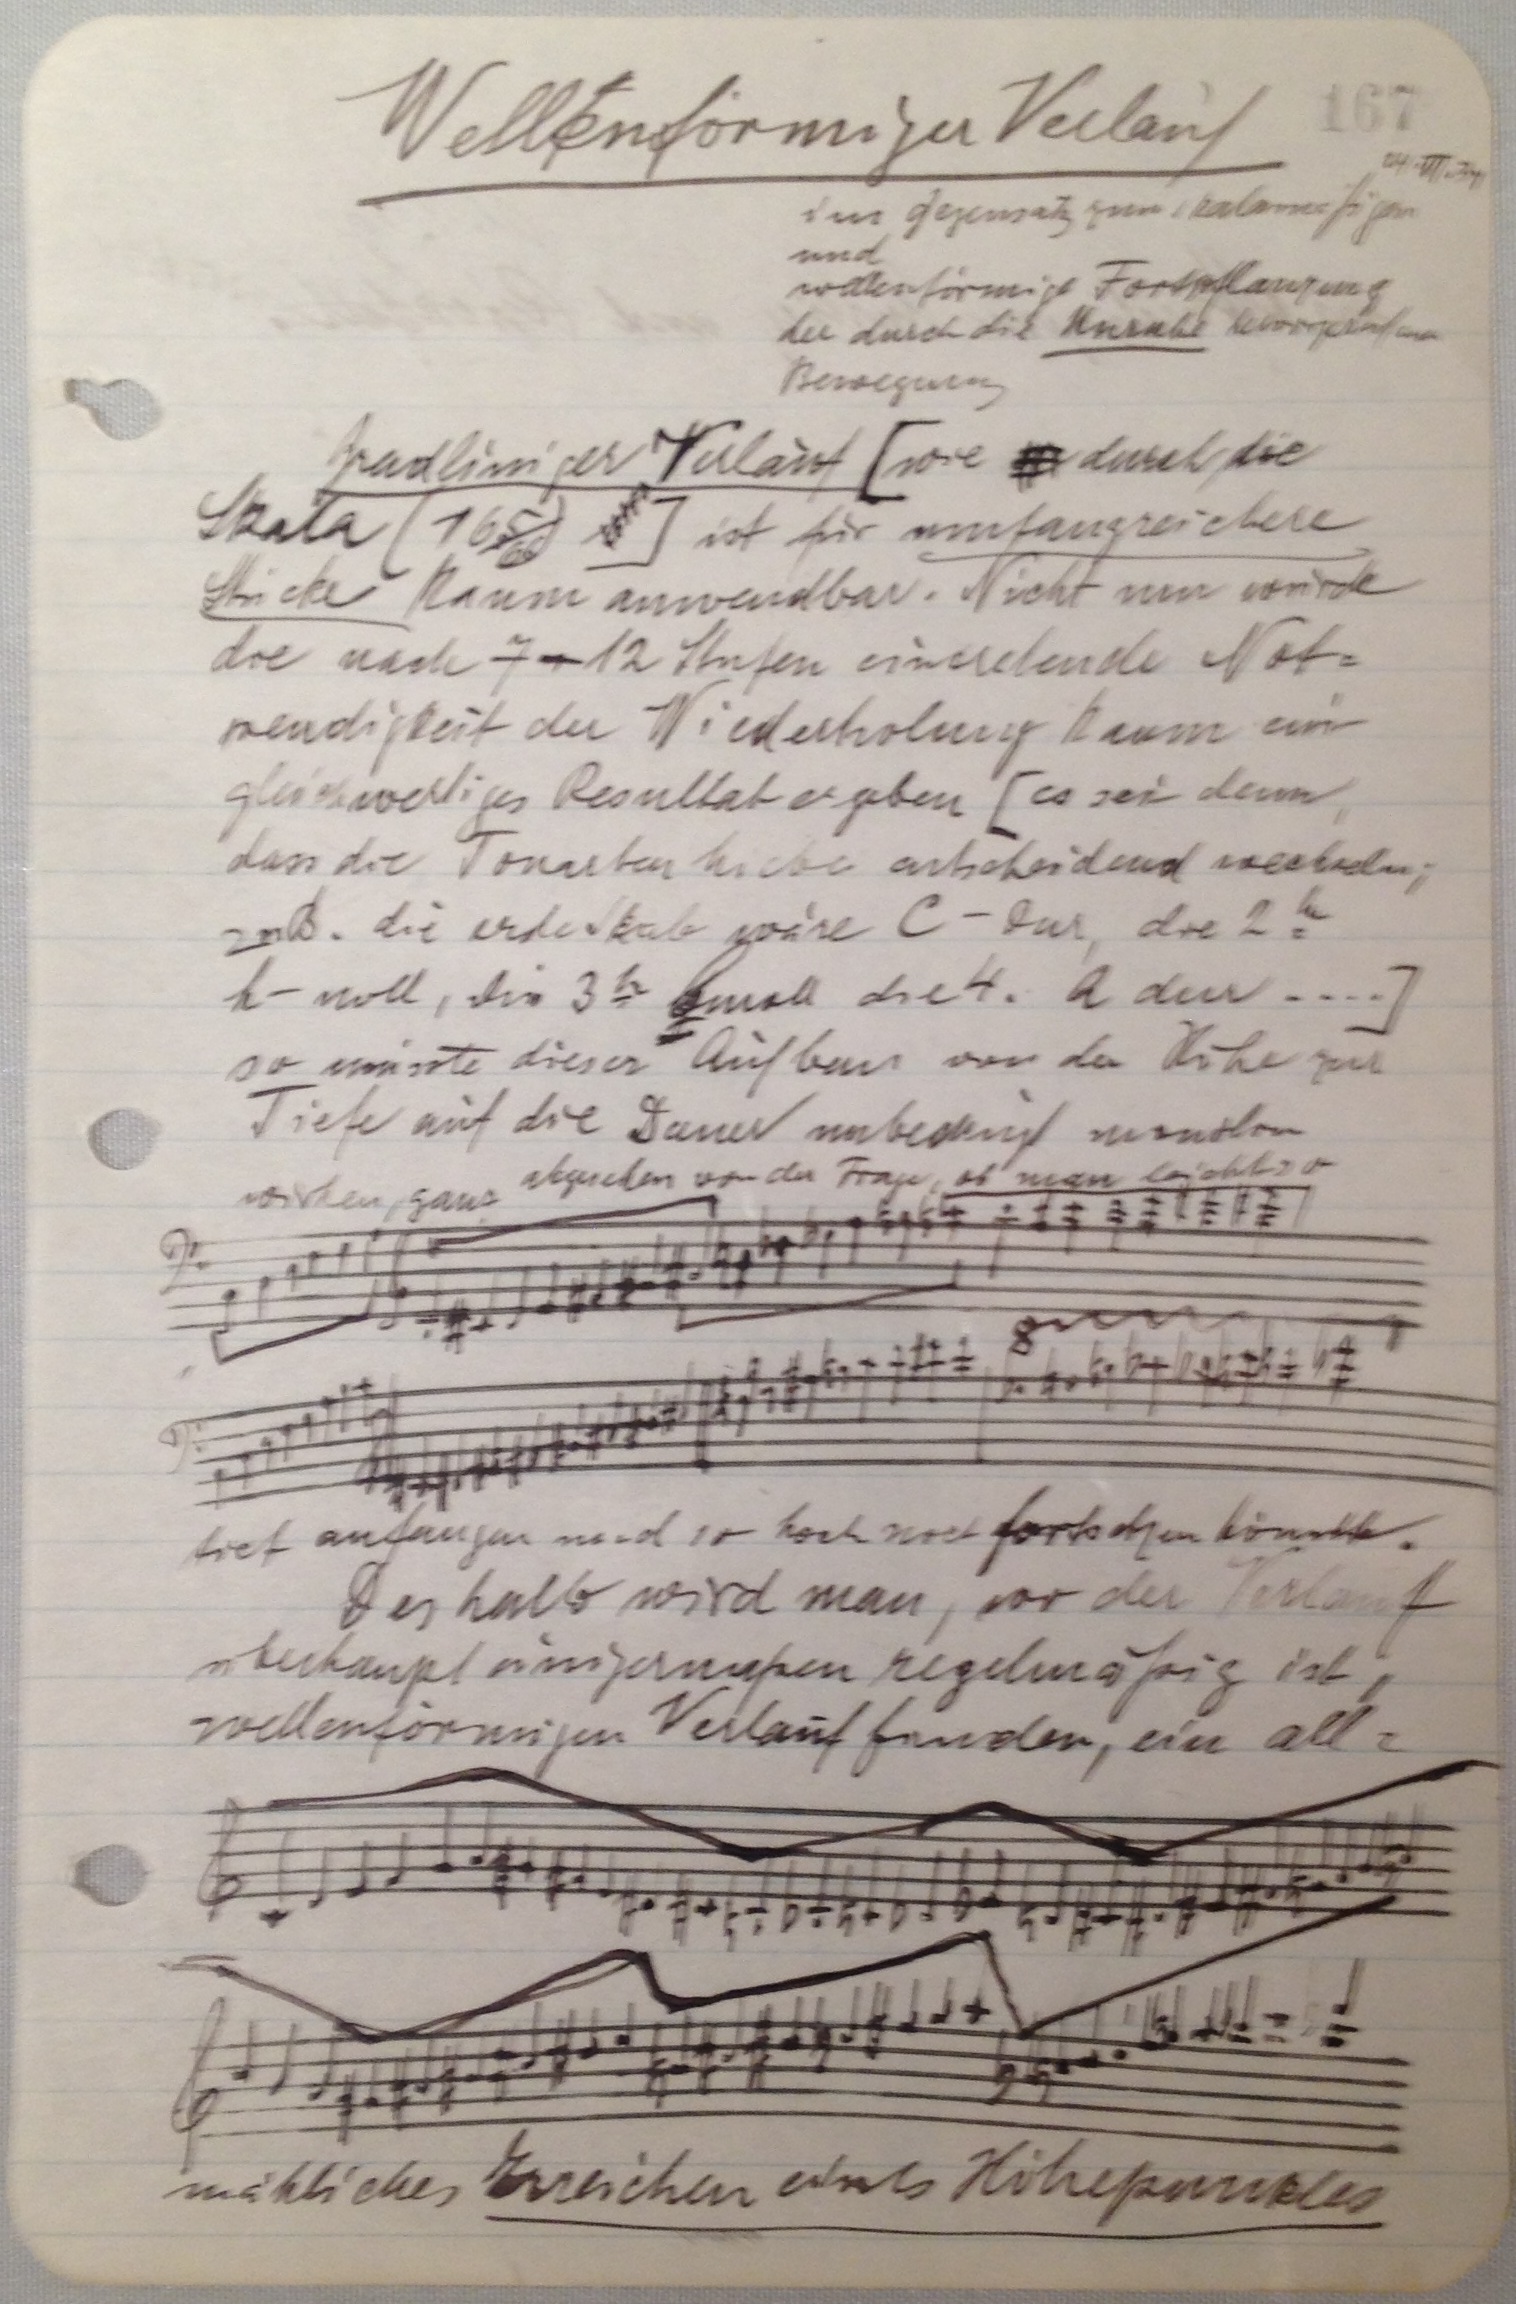 Wellenförmiger Verlauf
167
im Gegensatz zum skalamäßigen
und
wellenförmige Fortpflanzung
der durch die Unruhe hervorgerufenen
Bewegung
gradliniger Verlauf [wie durch die
Skala (165/66)] ist für umfangreichere
Stücke kaum anwendbar. Nicht nur würde
die nach 7-12 Stufen eintretende Not=
wendigkeit der Wiederholung kaum ein
gleichwertiges Resultat ergeben [es sei denn,
dass die Tonarten hiebei entscheidend wechseln;
z.B. die erste Skala wäre C-Dur, die 2te
h-moll, die 3te moll die 4. A dur ----]
so müsste dieser Aufbau von der Höhe zur
Tiefe auf die Dauer unbedingt monoton
wirken, ganz abgesehen von der Frage, ob man leicht so
8
tief anfangen und so hoch noch fortsetzen könnte.
Deshalb wird man, wo der Verlauf
überhaupt einigermaßen regelmäßig ist,
wellenförmigen Verlauf finden, ein all=
mähliches Erreichen eines Höhepunktes